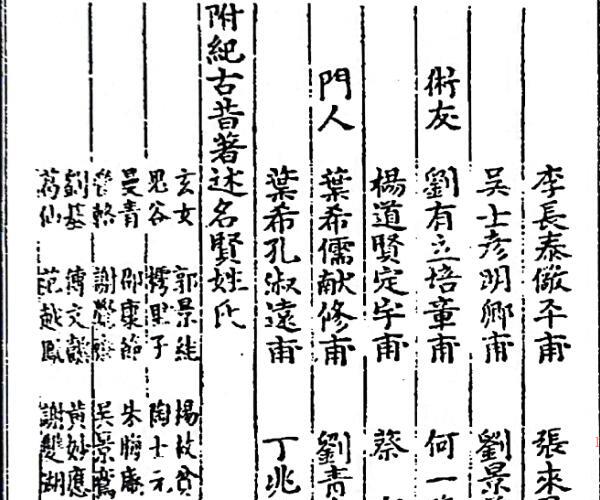 李長泰儆平甫 張來
吳士彥明卿甫 劉景
術友 劉有立培章甫 何一
楊道賢定宇甫 蔡
門人 葉希儒献修甫 劉青
葉希孔淑遠甫 丁兆
附紀古昔著述名賢姓氏
玄女 郭景純 楊救貧
鬼谷 樗里子 陶士元
曼青 邵康節 朱晦庵
管輅 謝 吳景鸞
劉基 傅文懿 黃妙應
葛仙 范越鳳 謝雙湖